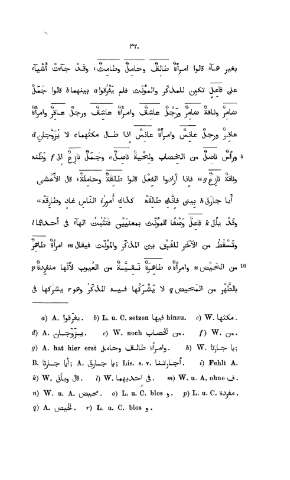 ٣٢٠
بغير هاء قالوا امرأة طالق وحامل وطامث وقد جاءت أشياء
على فاعل تكون للمذكر والمؤنث فلم يفرقوا a بينهما b قالوا جمل
ضامر وناقة ضامر ورجل عاشق وامرأة عاشق ورجل عاقر وامرأة
عاقر ورجل عانس وامرأة عانس اذا طال مكثهما c لا يزوجان d
5 ورأس ناصل من e الخضاب ولحية ناصل وجمل نازع الى f وطنه
وناقة نازع g فاذا أرادوا الفعل قالوا طالقة وحاملة h قال الأعشى
أيا جارتى h بينى فانك طالقة كذاك أمور الناس غاد وطارقه
وقد يأتى k فاعل وصفا للمؤنث بمعنيين فتثبت الهاء فى أحدهما l
وتسقط من الآخر للفرق بين المذكر والمؤنث فيقال m امرأة طاهر
10 من الحيض n وامرأة o طاهرة نقية من العيوب لأنها منفردة p
بالطهر من المحيض q لا يشركها فيه المذكر وهو يشركها فى
a) A. يفرقوا. b) L. u. C. setzen فيها hinzu. c) W. مكثها.
d) A. يزوجان. e) W. noch خضاب من. f) W. من.
g) A. hat hier erst وامرأة طالق وحامل. h) W. يا جارتا;
B. أيا جارتا; A. يا جارتى; Lis. s. v. أجارتنا. i) Fehlt A.
k) W. قال ويأتى. l) W. فى احديهما. m) W. u. A. ohne ف.
n) W. u. A. محيض. o) L. u. C. blos و. p) L. u. C. مفردة.
q) A. الحيض. r) L. u. C. blos و.